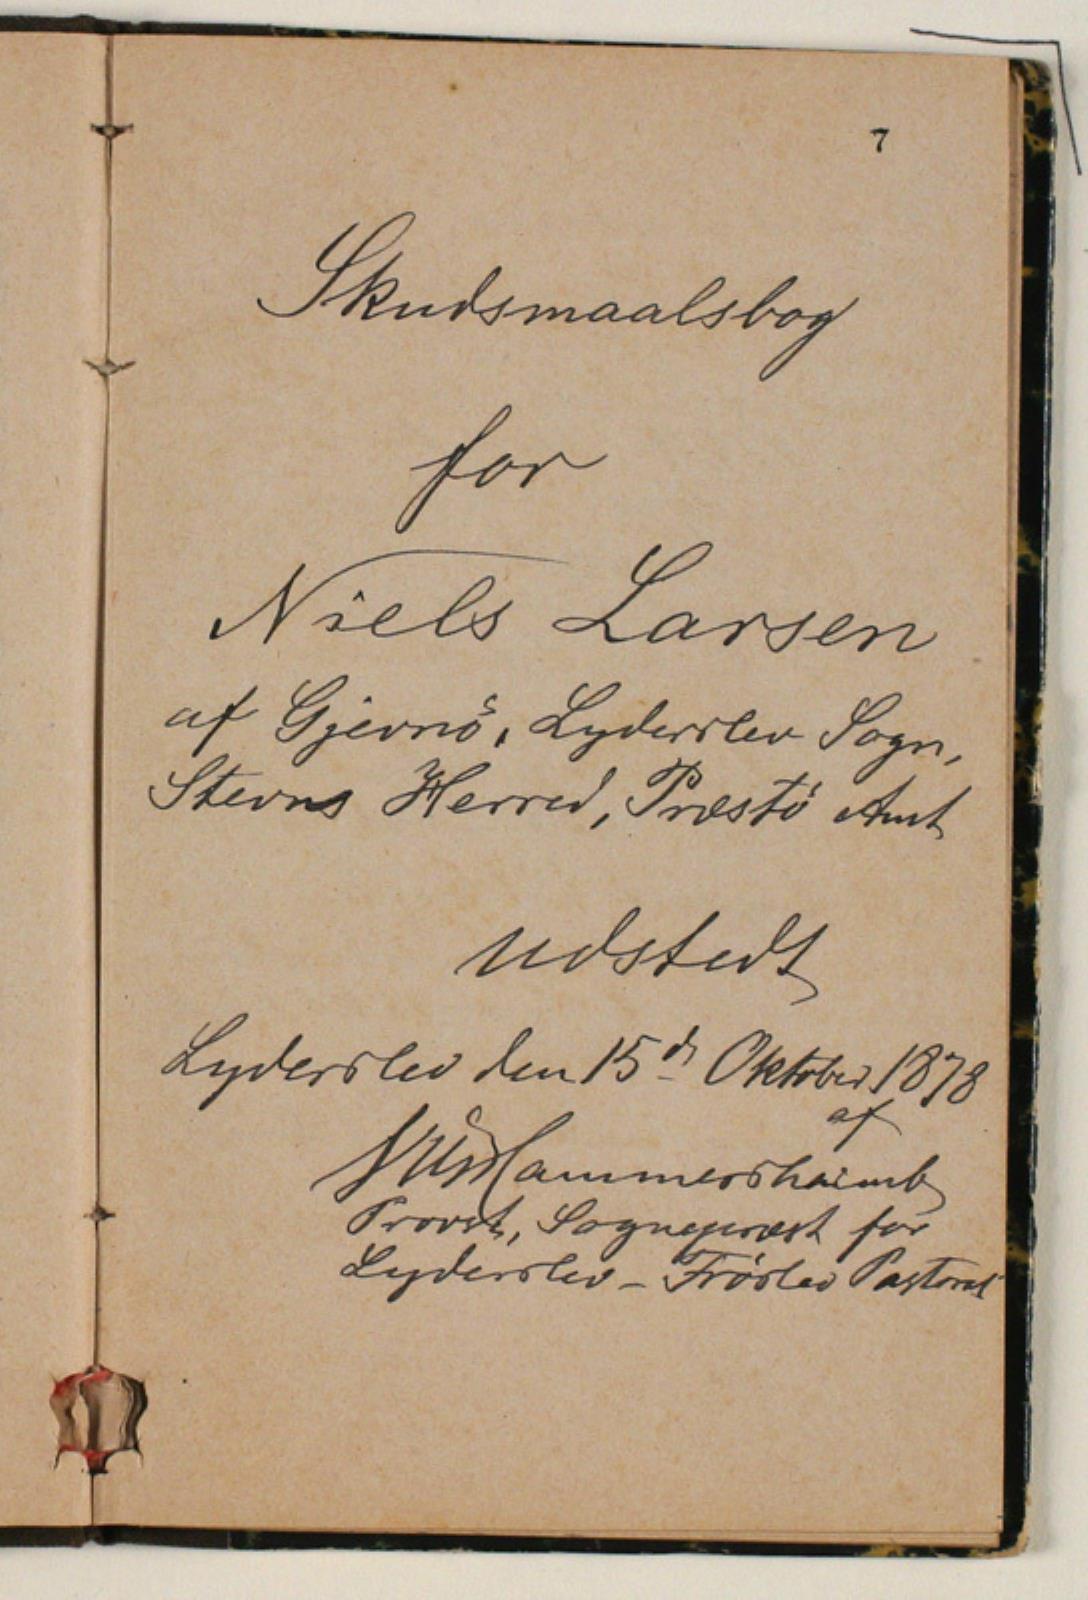 7
Skudsmaalsbog
for
Niels Larsen
af Gjevnö, Lyderslev Sogn,
Stevns Herred, Præstö Amt
udstedt
Lyderslev den 15d. Oktober 1878
af
VUHammershaimb
Provst, Sognepræst for
Lyderslev - Frörslev Pastorat